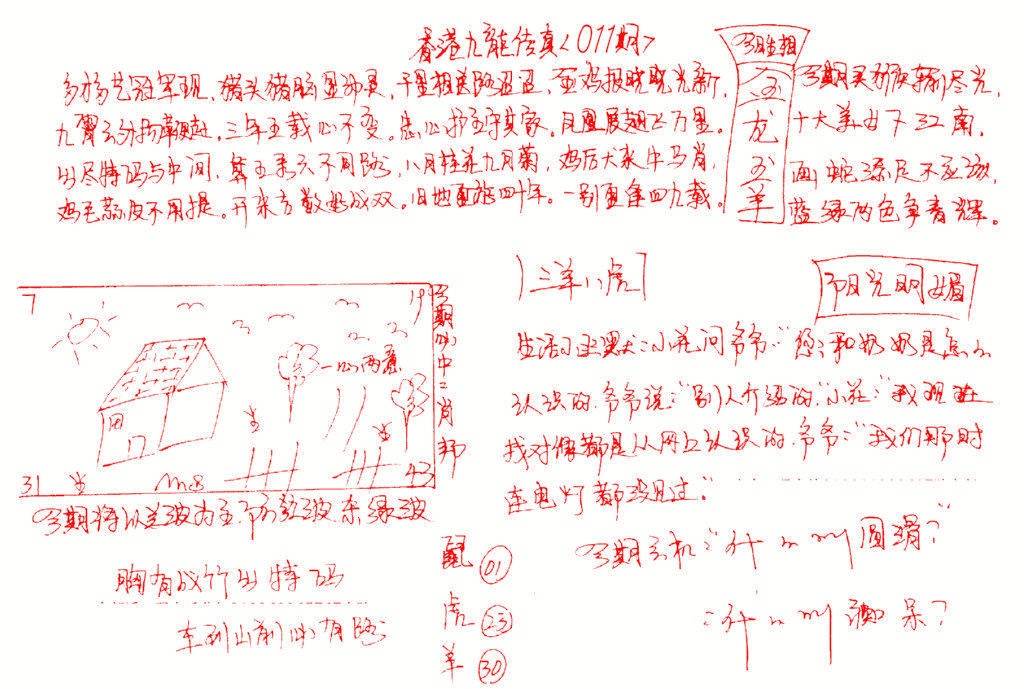 香港九龍传真<011期>
今期生肖
金龙玉羊
今期买
十大美女下江南,
画蛇添足不应该,
蓝绿两色争春辉。
猪头猪脑显神灵,千里相送路迢迢,金鸡报晓晓光新,
九霄云外,三年五载心不变。忠心护主守其家,凤凰展翅飞万里。
出尽特码与中间,不同路,八月桂花九月菊,鸡后犬来牛马肖,
鸡毛蒜皮不用提。开来六数成双。旧地重游四十年。一别重逢四九载。
7
19
一心两意
31
43
今期必中二肖
今期将以兰波为主.防红波.杀绿波
胸有成竹出特码
车到山前必有路
鼠 01
虎 23
羊 30
三羊八虎
阳光明媚
生活小幽默:小花问爷爷"您和奶奶是怎么
认识的.爷爷说:"别人介绍的."小花:"我现在
找对像都是从网上认识的.爷爷:"我们那时
连电灯都没见过."
今期玄机:"什么叫圆滑?"
:什么叫 呆?